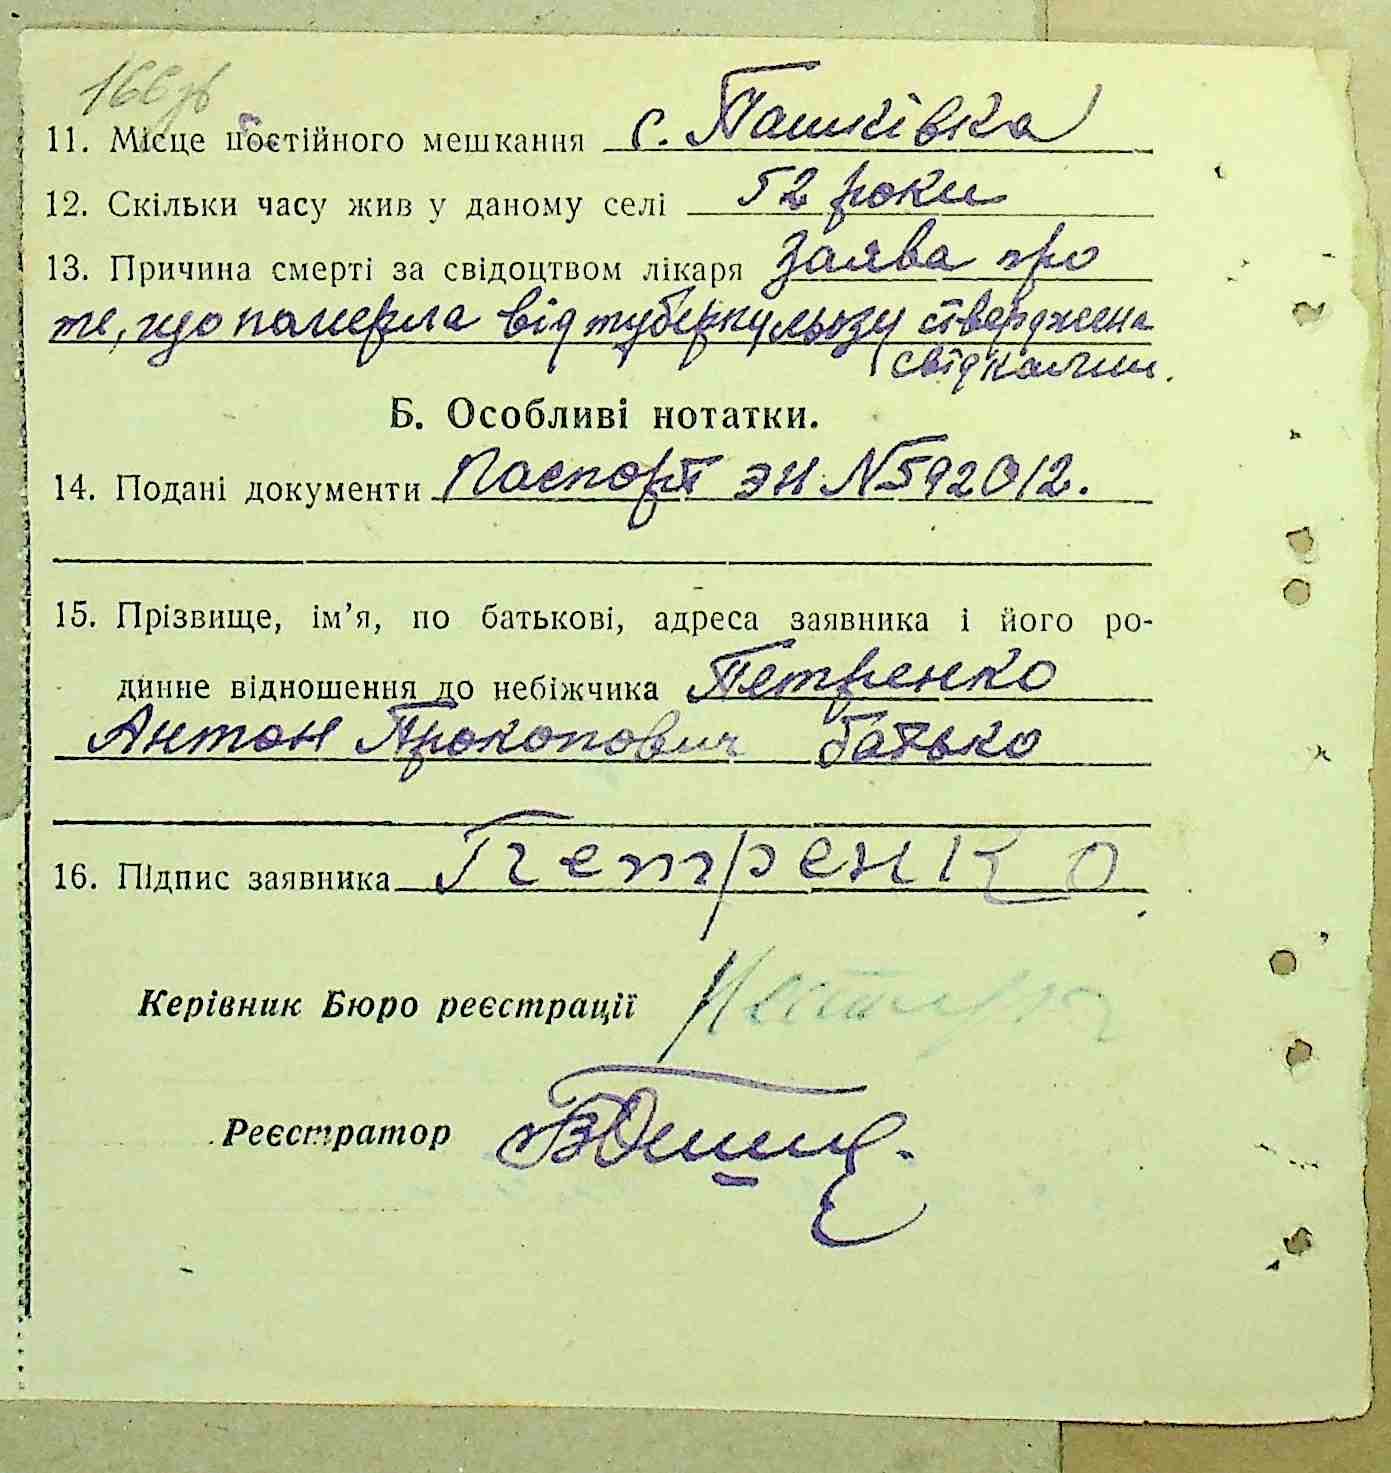 166зв
11. Місце постійного мешкання с. Пашківка
12. Скільки часу жив у даному селі 52 роки
13. Причина смерті за свідоцтвом лікаря Заява про
те, що померла від туберкульозу стверджена
свідками.
Б. Особливі нотатки.
14. Подані документи Паспорт ЭН № 592012.
15. Прізвище, ім'я, по батькові, адреса заявника і його ро-
динне відношення до небіжчика Петренко
Антон Прокопович батько
16. Підпис заявника Петренко
Керівник Бюро реєстрації
Реєстратор